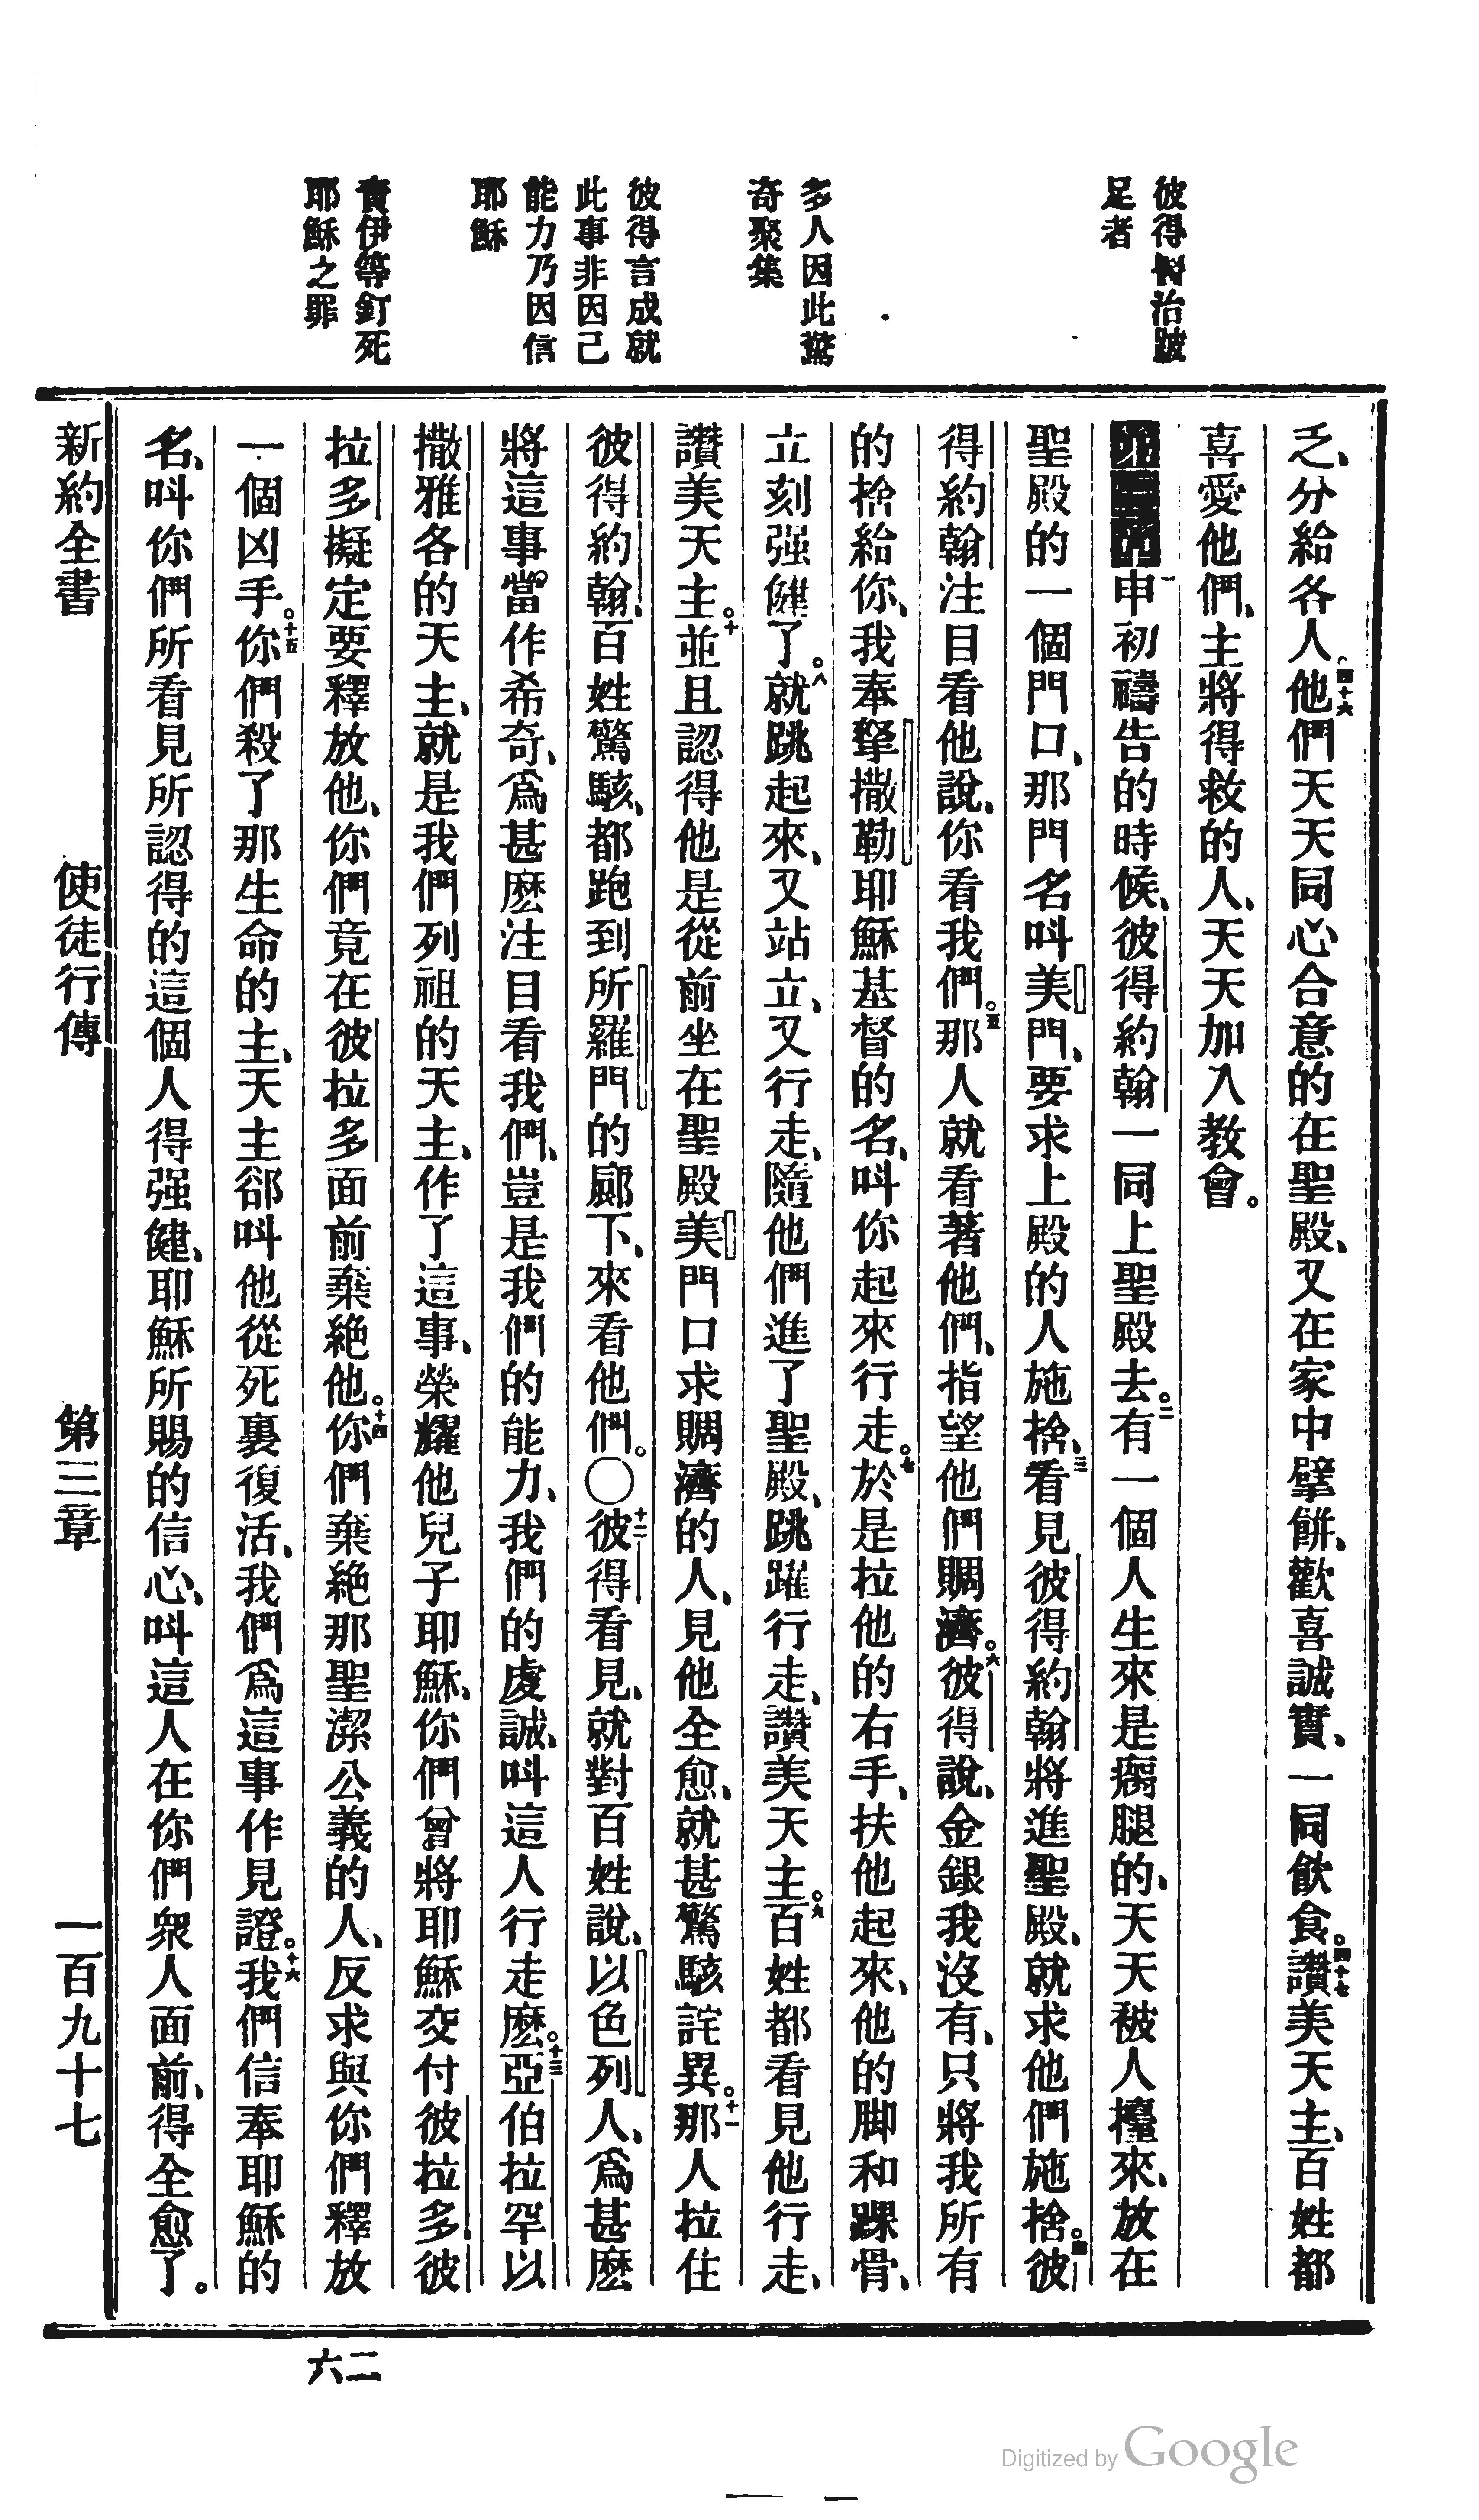 彼得醫治跛
足者
多人因此驚
奇聚集
彼得言成就
此事非因己
能力乃因信
耶穌
責伊等釘死
耶穌之罪
乏、分給各人。四十六他們天天同心合意的在聖殿、又在家中擘餅、歡喜誠實、一同飲食。四十七讚美天主、百姓都
喜愛他們、主將得救的人、天天加入教會。
第三章一申初禱告的時候、彼得約翰一同上聖殿去。二有一個人生來是瘸腿的、天天被人擡來、放在
聖殿的一個門口、那門名呌美門、要求上殿的人施捨、三看見彼得約翰將進聖殿、就求他們施捨。四彼
得約翰注目看他說、你看我們。五那人就看著他們、指望他們賙濟。六彼得說、金銀我沒有、只將我所有
的捨給你、我奉拏撒勒耶穌基督的名、呌你起來行走。七於是拉他的右手、扶他起來、他的脚和踝骨、
立刻强健了。八就跳起來、又站立、又行走、隨他們進了聖殿、跳躍行走、讚美天主。九百姓都看見他行走、
讚美天主。十並且認得他是從前坐在聖殿美門口求賙濟的人、見他全愈、就甚驚駭詫異。十一那人拉住
彼得約翰、百姓驚駭、都跑到所羅門的廊下、來看他們。〇十二彼得看見、就對百姓說、以色列人、爲甚麼
將這事當作希奇、爲甚麼注目看我們、豈是我們的能力、我們的虔誠、呌這人行走麼。十三亞伯拉罕以
撒雅各的天主、就是我們列祖的天主、作了這事、榮耀他兒子耶穌、你們曾將耶穌交付彼拉多、彼
拉多擬定要釋放他、你們竟在彼拉多面前棄絶他。十四你們棄絶那聖潔公義的人、反求與你們釋放
一個凶手。十五你們殺了那生命的主、天主卻呌他從死裏復活、我們爲這事作見證。十六我們信奉耶穌的
名、呌你們所看見所認得的這個人得强健、耶穌所賜的信心、呌這人在你們衆人面前、得全愈了。
新約全書　使徒行傳　第三章　一百九十七
二六
Digitized by Google